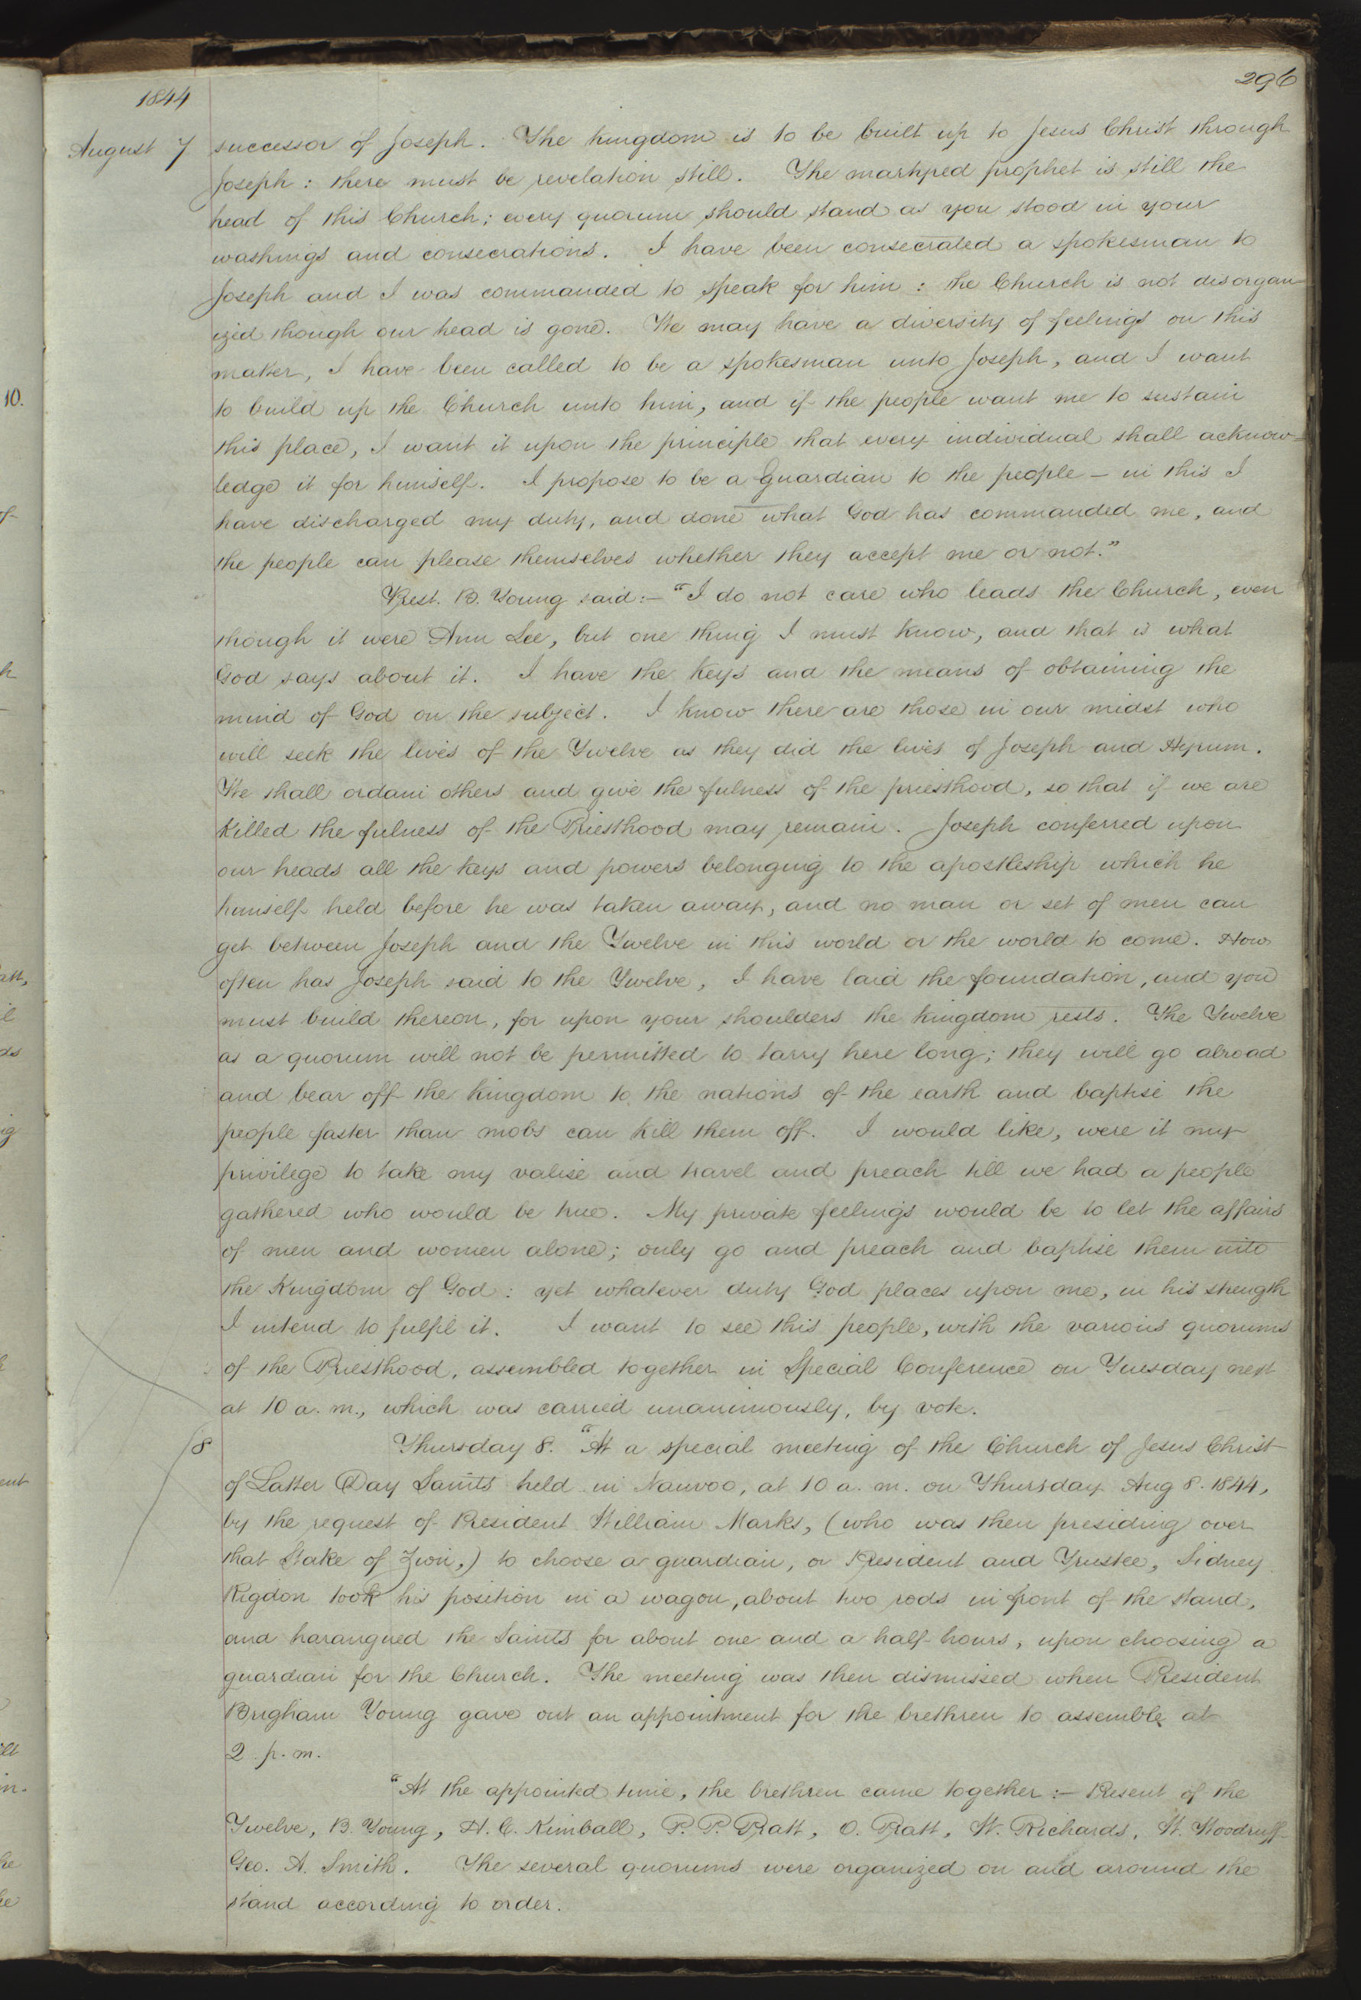 296
1844
August 7 successor of Joseph. The kingdom is to be built up to Jesus Christ through
Joseph: there must be revelation still. The martyred prophet is still the
head of this Church; every quorum should stand as you stood in your
washings and consecrations. I have been consecrated a spokesman to
Joseph and I was commanded to speak for him: the Church is not disorgan-
ized though our head is gone. We may have a diversity of feelings on this
matter, I have been called to be a spokesman unto Joseph, and I want
to build up the Church unto him, and if the people want me to sustain
this place, I want it upon the principle that every individual shall acknow-
ledge it for himself. I propose to be a guardian to the people – in this I
have discharged my duty, and done what God has commanded me, and
the people can please themselves whether they accept me or not."
Prest. B. Young said:– "I do not care who leads the Church, even
though it were Ann Lee, but one thing I must know, and that is what
God says about it. I have the keys and the means of obtaining the
mind of God on the subject. I know there are those in our midst who
will seek the lives of the Twelve as they did the lives of Joseph and Hyrum.
We shall ordain others and give the fulness of the priesthood, so that if we are
killed the fulness of the Priesthood may remain. Joseph conferred upon
our heads all the keys and powers belonging to the apostleship which he
himself held before he was taken away, and no man or set of men can
get between Joseph and the Twelve in this world or the world to come. How
often has Joseph said to the Twelve, I have laid the foundation, and you
must build thereon, for upon your shoulders the kingdom rests. The Twelve
as a quorum will not be permitted to tarry here long; they will go abroad
and bear off the kingdom to the nations of the earth and baptise the
people faster than mobs can kill them off. I would like, were it my
privilege to take my valise and travel and preach till we had a people
gathered who would be true. My private feelings would be to let the affairs
of men and women alone; only go and preach and baptise them into
the Kingdom of God: yet whatever duty God places upon me, in his strength
I intend to fulfil it. I want to see this people, with the various quorums
of the Priesthood, assembled together in Special Conference on Tuesday next
at 10 a. m., which was carried unanimously, by vote.
8 Thursday 8. "At a special meeting of the Church of Jesus Christ
of Latter Day Saints held in Nauvoo, at 10 a. m. on Thursday Aug 8. 1844,
by the request of President William Marks, (who was then presiding over
that Stake of Zion,) to choose a guardian, or President and Trustee, Sidney
Rigdon took his position in a wagon, about two rods in front of the stand,
and harangued the Saints for about one and a half hours, upon choosing a
guardian for the Church. The meeting was then dismissed when President
Brigham Young gave out an appointment for the brethren to assemble at
2 p. m.
"At the appointed time, the brethren came together:– Present of the
Twelve, B. Young, H. C. Kimball, P. P. Pratt, O. Pratt, W. Richards, W. Woodruff
Geo. A. Smith. The several quorums were organized on and around the
stand according to order.
10.